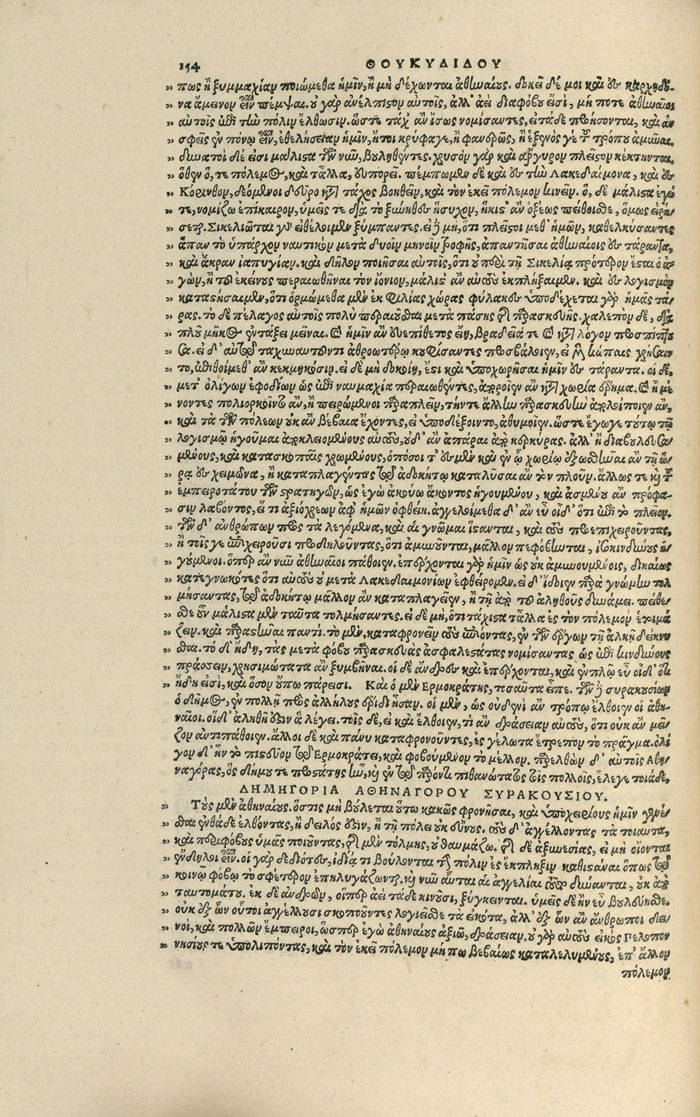 154 ΘΟΥΚΥΔΙΔΟΥ
πως ἢ ξυμμαχίαν ποιώμεθα ἡμῖν, ἢ μὴ δέχωνται ἀθηναίους. δοκεῖ δέ μοι καὶ ἐς καρχηδό-
να ἄμεινον εἶναι πέμψαι. οὐ γὰρ ἀνέλπιστον αὐτοῖς, ἀλλ' ἀεὶ διαφόβου εἰσὶ, μή ποτε ἀθηναῖοι
αὐτοῖς ἐπὶ τὴν πόλιν ἔλθωσιν. ὥστε τάχ' ἂν ἴσως νομίσαντες. εἰ τάδε προήσονται, καὶ ἂν
σφεῖς ἐν πόνῳ εἶναι, ἐθελήσειαν ἡμῖν, ἤτοι κρύφα γε, ἢ φανερῶς, ἢ ἐξ ἑνός γε του τρόπου ἀμῦναι.
δυνατοὶ δέ εἰσι μάλιστα τῶν νῦν, βουληθέντες. χρυσὸν γὰρ καὶ ἄργυρον πλεῖστον κέκτηνται.
ὅθεν ὅ, τε πόλεμος, καὶ τἄλλα, εὐπορεῖ. πέμπωμεν δὲ καὶ ἐς τὴν Λακεδαίμονα, καὶ ἐς
Κόρινθον, δεόμενοι δεῦρο κατὰ τάχος βοηθεῖν, καὶ τὸν ἐκεῖ πόλεμον κινεῖν. ὃ, δὲ μάλιστα ἐγώ
τε, νομίζω ἐπίκαιρον, ὑμεῖς τε διὰ τὸ ξύνηθες ἥσυχον, ἥκιστ' ἂν ὀξέως πείθοισθε, ὅμως εἰρή-
σεται. Σικελιῶται γὰρ εἰ θέλοιμεν ξύμπαντες. εἰ δὲ μὴ, ὅτι πλεῖστοι μεθ' ἡμῶν, καθελκύσαντες
ἅπαν τὸ ὑπάρχον ναυτικὸν μετὰ δυοῖν μηνοῖν τροφῆς, ἀπαντῆσαι ἀθηναίοις ἐς τάραντα,
καὶ ἄκραν ἰαπυγίαν. καὶ δῆλον ποιῆσαι αὐτοῖς, ὅτι οὐ περὶ τῇ Σικελίᾳ πρότερον ἔσται ὁ ἀ-
γὼν, ἢ τοῦ ἐκείνους περαιωθῆναι τὸν ἰόνιον, μάλιστ' ἂν αὐτοὺς ἐκπλήξαιμεν. καὶ ἐς λογισμὸν
καταστήσαιμεν, ὅτι ὁρμώμεθα μὲν ἐκ φιλίας χώρας φύλακες· ὑποδέχεται γὰρ ἡμᾶς τά-
ρας. τὸ δὲ πέλαγος αὐτοῖς πολὺ περαιοῦσθαι μετὰ πάσης τῆς παρασκευῆς. χαλεπὸν δὲ, διὰ
πλοῦ μῆκος ἐν τάξει μεῖναι. καὶ ἡμῖν ἂν εὐεπίθετος εἴη, βραδεῖά τε καὶ κατὰ λόγον προσπίπτου-
σα. εἰ δ' αὖ τῷ ταχυναυτοῦντι ἀθροωτέρῳ κουφίσαντες προσβάλοιεν, εἰ μὲν κώπαις χρήσαιν-
το, ἐπιθοίμεθ' ἂν κεκμηκόσιν. εἰ δὲ μὴ δοκοίη, ἔστι καὶ ὑποχωρῆσαι ἡμῖν ἐς τάραντα. οἱ δὲ,
μετ' ὀλίγων ἐφοδίων ὡς ἐπὶ ναυμαχίᾳ περαιωθέντες, ἀποροῖεν ἂν κατὰ χωρία ἔρημα. καὶ ἢ μέ-
νοντες πολιορκοῖντο ἂν, ἢ πειρώμενοι παραπλεῖν, τήν τε ἄλλην παρασκευὴν ἀπολίποιεν ἂν,
καὶ τὰ τῶν πόλεων οὐκ ἂν βέβαια ἔχοντες, εἰ ὑποδέξοιντο, ἀθυμοῖεν. ὥστε ἔγωγε τούτῳ τῷ
λογισμῷ ἡγοῦμαι ἀποκλειομένους αὐτοὺς, οὐδ' ἂν ἀπᾶραι ἀπὸ κερκύρας. ἀλλ' ἢ διαβουλευσα-
μένους, καὶ κατασκοπαῖς χρωμένους, ὁπόσοι τ' ἐσμὲν καὶ ἐν ᾧ χωρίῳ ἐξωσθῆναι ἂν τῇ ὥ-
ρᾳ ἐς χειμῶνα, ἢ καταπλαγέντας τῷ ἀδοκήτῳ καταλῦσαι ἂν τὸν πλοῦν. ἄλλως τε καὶ τοῦ
ἐμπειροτάτου τῶν στρατηγῶν, ὡς ἐγὼ ἀκούω ἄκοντος ἡγουμένου, καὶ ἀσμένου ἂν πρόφα-
σιν λαβόντος, εἴ τι ἀξιόχρεων ἀφ' ἡμῶν ὀφθείη. ἀγγελοίμεθα δ' ἂν εὖ οἶδ' ὅτι ἐπὶ τὸ πλεῖον.
τῶν δ' ἀνθρώπων πρὸς τὰ λεγόμενα, καὶ αἱ γνῶμαι ἵστανται, καὶ τοὺς προεπιχειροῦντας,
ἢ τοῖς γε ἐπιχειροῦσι προδηλοῦντας, ὅτι ἀμυνοῦνται, μᾶλλον πεφόβηνται, ἰσοκινδύνους ἡ-
γούμενοι. ὅπερ ἂν νῦν ἀθηναῖοι πάθοιεν. ἐπέρχονται γὰρ ἡμῖν ὡς οὐκ ἀμυνουμένοις, δικαίως
κατεγνωκότες ὅτι αὐτοὺς οὐ μετὰ Λακεδαιμονίων ἐφθείρομεν. εἰ δ' ἴδοιεν παρὰ γνώμην τολ-
μήσαντας, τῷ ἀδοκήτῳ μᾶλλον ἂν καταπλαγεῖεν, ἢ τῇ ἀπὸ τοῦ ἀληθοῦς δυνάμει. πείθε-
σθε οὖν μάλιστα μὲν ταῦτα τολμήσαντες. εἰ δὲ μὴ, ὅτι τάχιστα τἄλλα ἐς τὸν πόλεμον ἑτοιμά-
ζειν. καὶ παραστῆναι παντὶ. τὸ μὲν, καταφρονεῖν τοὺς ἐπιόντας, ἐν τῶν ἔργων τῇ ἀλκῇ δείκνυ-
σθαι. τὸ δ' ἤδη, τὰς μετὰ φόβου παρασκευὰς ἀσφαλεστάτας νομίσαντας ὡς ἐπὶ κινδύνου
πράσσειν, χρησιμώτατα ἂν ξυμβῆναι. οἱ δὲ ἄνδρες καὶ ἐπέρχονται, καὶ ἐν πλῷ εὖ οἶδ' ὅτι
ἤδη εἰσὶ, καὶ ὅσον οὔπω πάρεισι. Καὶ ὁ μὲν Ερμοκράτης, τοσαῦτα εἶπε. τῶν δὲ συρακουσίων
ὁ δῆμος, ἐν πολλῇ πρὸς ἀλλήλους ἔριδι ἦσαν. οἱ μὲν, ὡς οὐδενὶ ἂν τρόπῳ ἔλθοιεν οἱ ἀθη-
ναῖοι. οἱ δ' ἀληθῆ ἐστιν ἃ λέγει. τοῖς δὲ, εἰ καὶ ἔλθοιεν, τί ἂν δράσειαν αὐτοὺς, ὅτι οὐκ ἂν μεῖ-
ζον ἀντιπάθοιεν. ἄλλοι δὲ καὶ πάνυ καταφρονοῦντες, ἐς γέλωτα ἔτρεπον τὸ πρᾶγμα. ὀλί-
γον δ' ἦν τὸ πιστεῦον τῷ Ερμοκράτει, καὶ φοβούμενον τὸ μέλλον. παρελθὼν δ' αὐτοῖς Αθη-
ναγόρας, ὃς δήμου τε προστάτης ἦν, καὶ ἐν τῷ παρόντι πιθανώτατος τοῖς πολλοῖς, ἔλεγε τοιάδε.
ΔΗΜΗΓΟΡΙΑ ΑΘΗΝΑΓΟΡΟΥ ΣΥΡΑΚΟΥΣΙΟΥ.
Τοὺς μὲν ἀθηναίους. ὅστις μὴ βούλεται οὕτω κακῶς φρονῆσαι, καὶ ὑποχειρίους ἡμῖν γενέ-
σθαι ἐνθάδε ἐλθόντας, ἢ δειλός ἐστιν, ἢ τῇ πόλει οὐκ εὔνους. τοὺς δ' ἀγγέλλοντας τὰ τοιαῦτα,
καὶ περιφόβους ὑμᾶς ποιοῦντας, τῆς μὲν τόλμης, οὐ θαυμάζω. τῆς δὲ ἀξυνεσίας, εἰ μὴ οἴονται
ἔνδηλοι εἶναι. οἱ γὰρ δεδιότες, ἰδίᾳ τι βούλονται τὴν πόλιν ἐς ἔκπληξιν καθιστάναι ὅπως τῷ
κοινῷ φόβῳ τὸ σφέτερον ἐπηλυγάζωνται. καὶ νῦν αὗται αἱ ἀγγελίαι τοῦτο δύνανται, οὐκ ἀπὸ
ταυτομάτου. ἐκ δὲ ἀνδρῶν, οἵπερ ἀεὶ τάδε κινοῦσι, ξύγκεινται. ὑμεῖς δὲ ἢν εὖ βουλεύησθε.
οὐκ ἐξ ὧν οὗτοι ἀγγέλλουσι σκοποῦντες λογιεῖσθε τὰ εἰκότα, ἀλλ' ἐξ ὧν ἂν ἄνθρωποι δει-
νοὶ, καὶ πολλῶν ἔμπειροι, ὥσπερ ἐγὼ ἀθηναίους ἀξιῶ, δράσειαν. οὐ γὰρ αὐτοὺς εἰκὸς Πελοπον
νησίους τε ὑπολιπόντας, καὶ τὸν ἐκεῖ πόλεμον μήπω βεβαίως καταλελυμένους, ἐπ' ἄλλον
πόλεμον